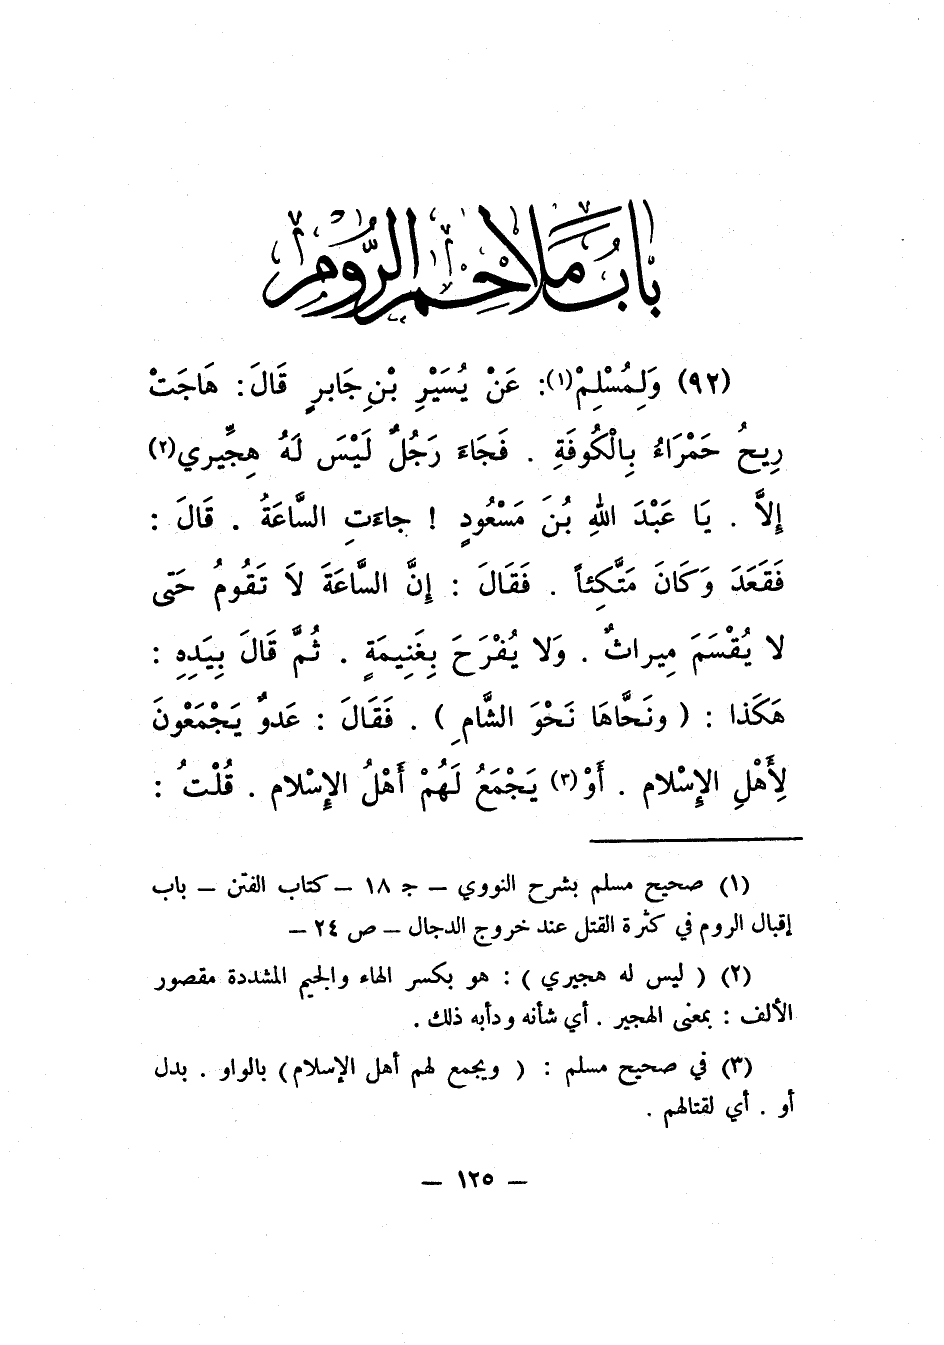 بَابُ مَلَاحِمِ الرُّومِ
(٩٢) وَلِمُسْلِمْ(١): عَنْ يُسَيْرِ بْنِ جَابرٍ قَالَ: هَاجَتْ
رِيحُ حَمْرَاءُ بِالْكُوفَةِ . فَجَاءَ رَجُلٌ لَيْسَ لَهُ هِجِّيري(٢)
إِلاَّ . يَا عَبْدَ اللهِ بُنَ مَسْعُودٍ ! جاءَتِ السَّاعَةُ . قَالَ :
فَقَعَدَ وَكَانَ مَتَّكِئاً . فَقَالَ : إِنَّ السَّاعَةَ لاَ تَقُومُ حَتى
لا يُقْسَمَ مِيراثٌ . وَلا يُفْرَحَ بِغَنِيمَةٍ . ثُمَّ قَالَ بِيَدِهِ :
هَكَذا : ( ونَحَّاهَا نَحْوَ الشَّامِ ) . فَقَالَ : عَدوٌ يَجْمَعْونَ
لِأَهْلِ الإِسْلام . أَوْ(٣) يَجْمَعُ لَهُمْ أَهْلُ الإِسْلام . قُلْتُ :
(١) صحيح مسلم بشرح النووي – جـ ١٨ – كتاب الفتن – باب
إقبال الروم في كثرة القتل عند خروج الدجال – ص ٢٤ –
(٢) ( ليس له هجيري ) : هو بكسر الهاء والجيم المشددة مقصور
الألف : بمعنى الهجير . أي شأنه ودأبه ذلك .
(٣) في صحيح مسلم : ( ويجمع لهم أهل الإسلام ) بالواو . بدل
أو . أي لقتالهم .
– ١٢٥ –